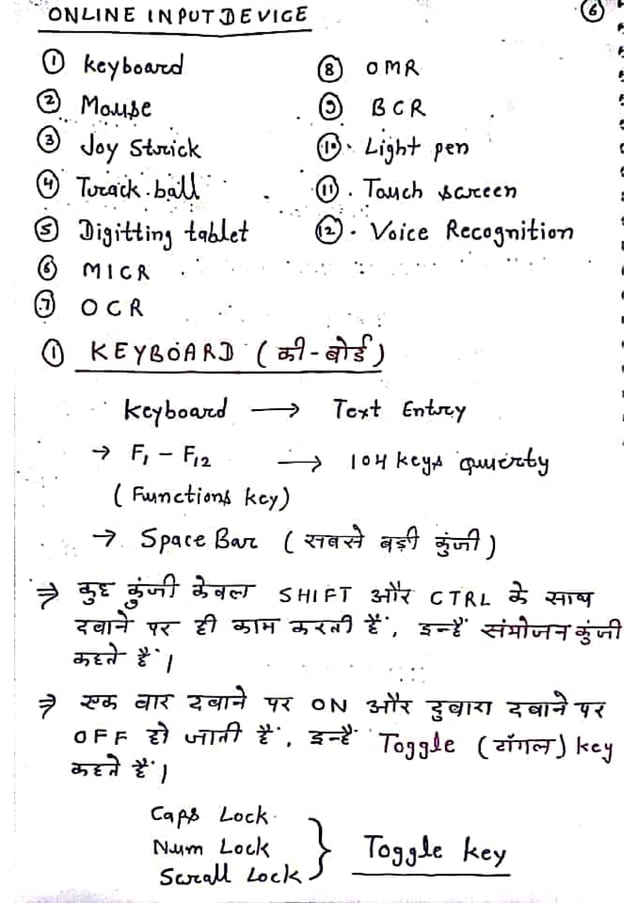 ONLINE INPUT DEVICE
6
① keyboard
② Mouse
③ Joy Strick
④ Track ball
⑤ Digitting tablet
⑥ MICR
⑦ OCR
⑧ OMR
⑨ BCR
⑩ Light pen
⑪ Touch screen
⑫ Voice Recognition
① KEYBOARD (की-बोर्ड)
Keyboard → Text Entry
→ F1 – F12 → 104 keys
(Functions key)
→ Space Bar (सबसे बड़ी कुंजी)
⇒ कुछ कुंजी केवल SHIFT और CTRL के साथ
दबाने पर ही काम करती हैं, इन्हें संयोजन कुंजी
कहते हैं।
⇒ एक बार दबाने पर ON और दुबारा दबाने पर
OFF हो जाती हैं, इन्हें Toggle (टॉगल) key
कहते हैं।
Caps Lock
Num Lock } Toggle key
Scrall Lock